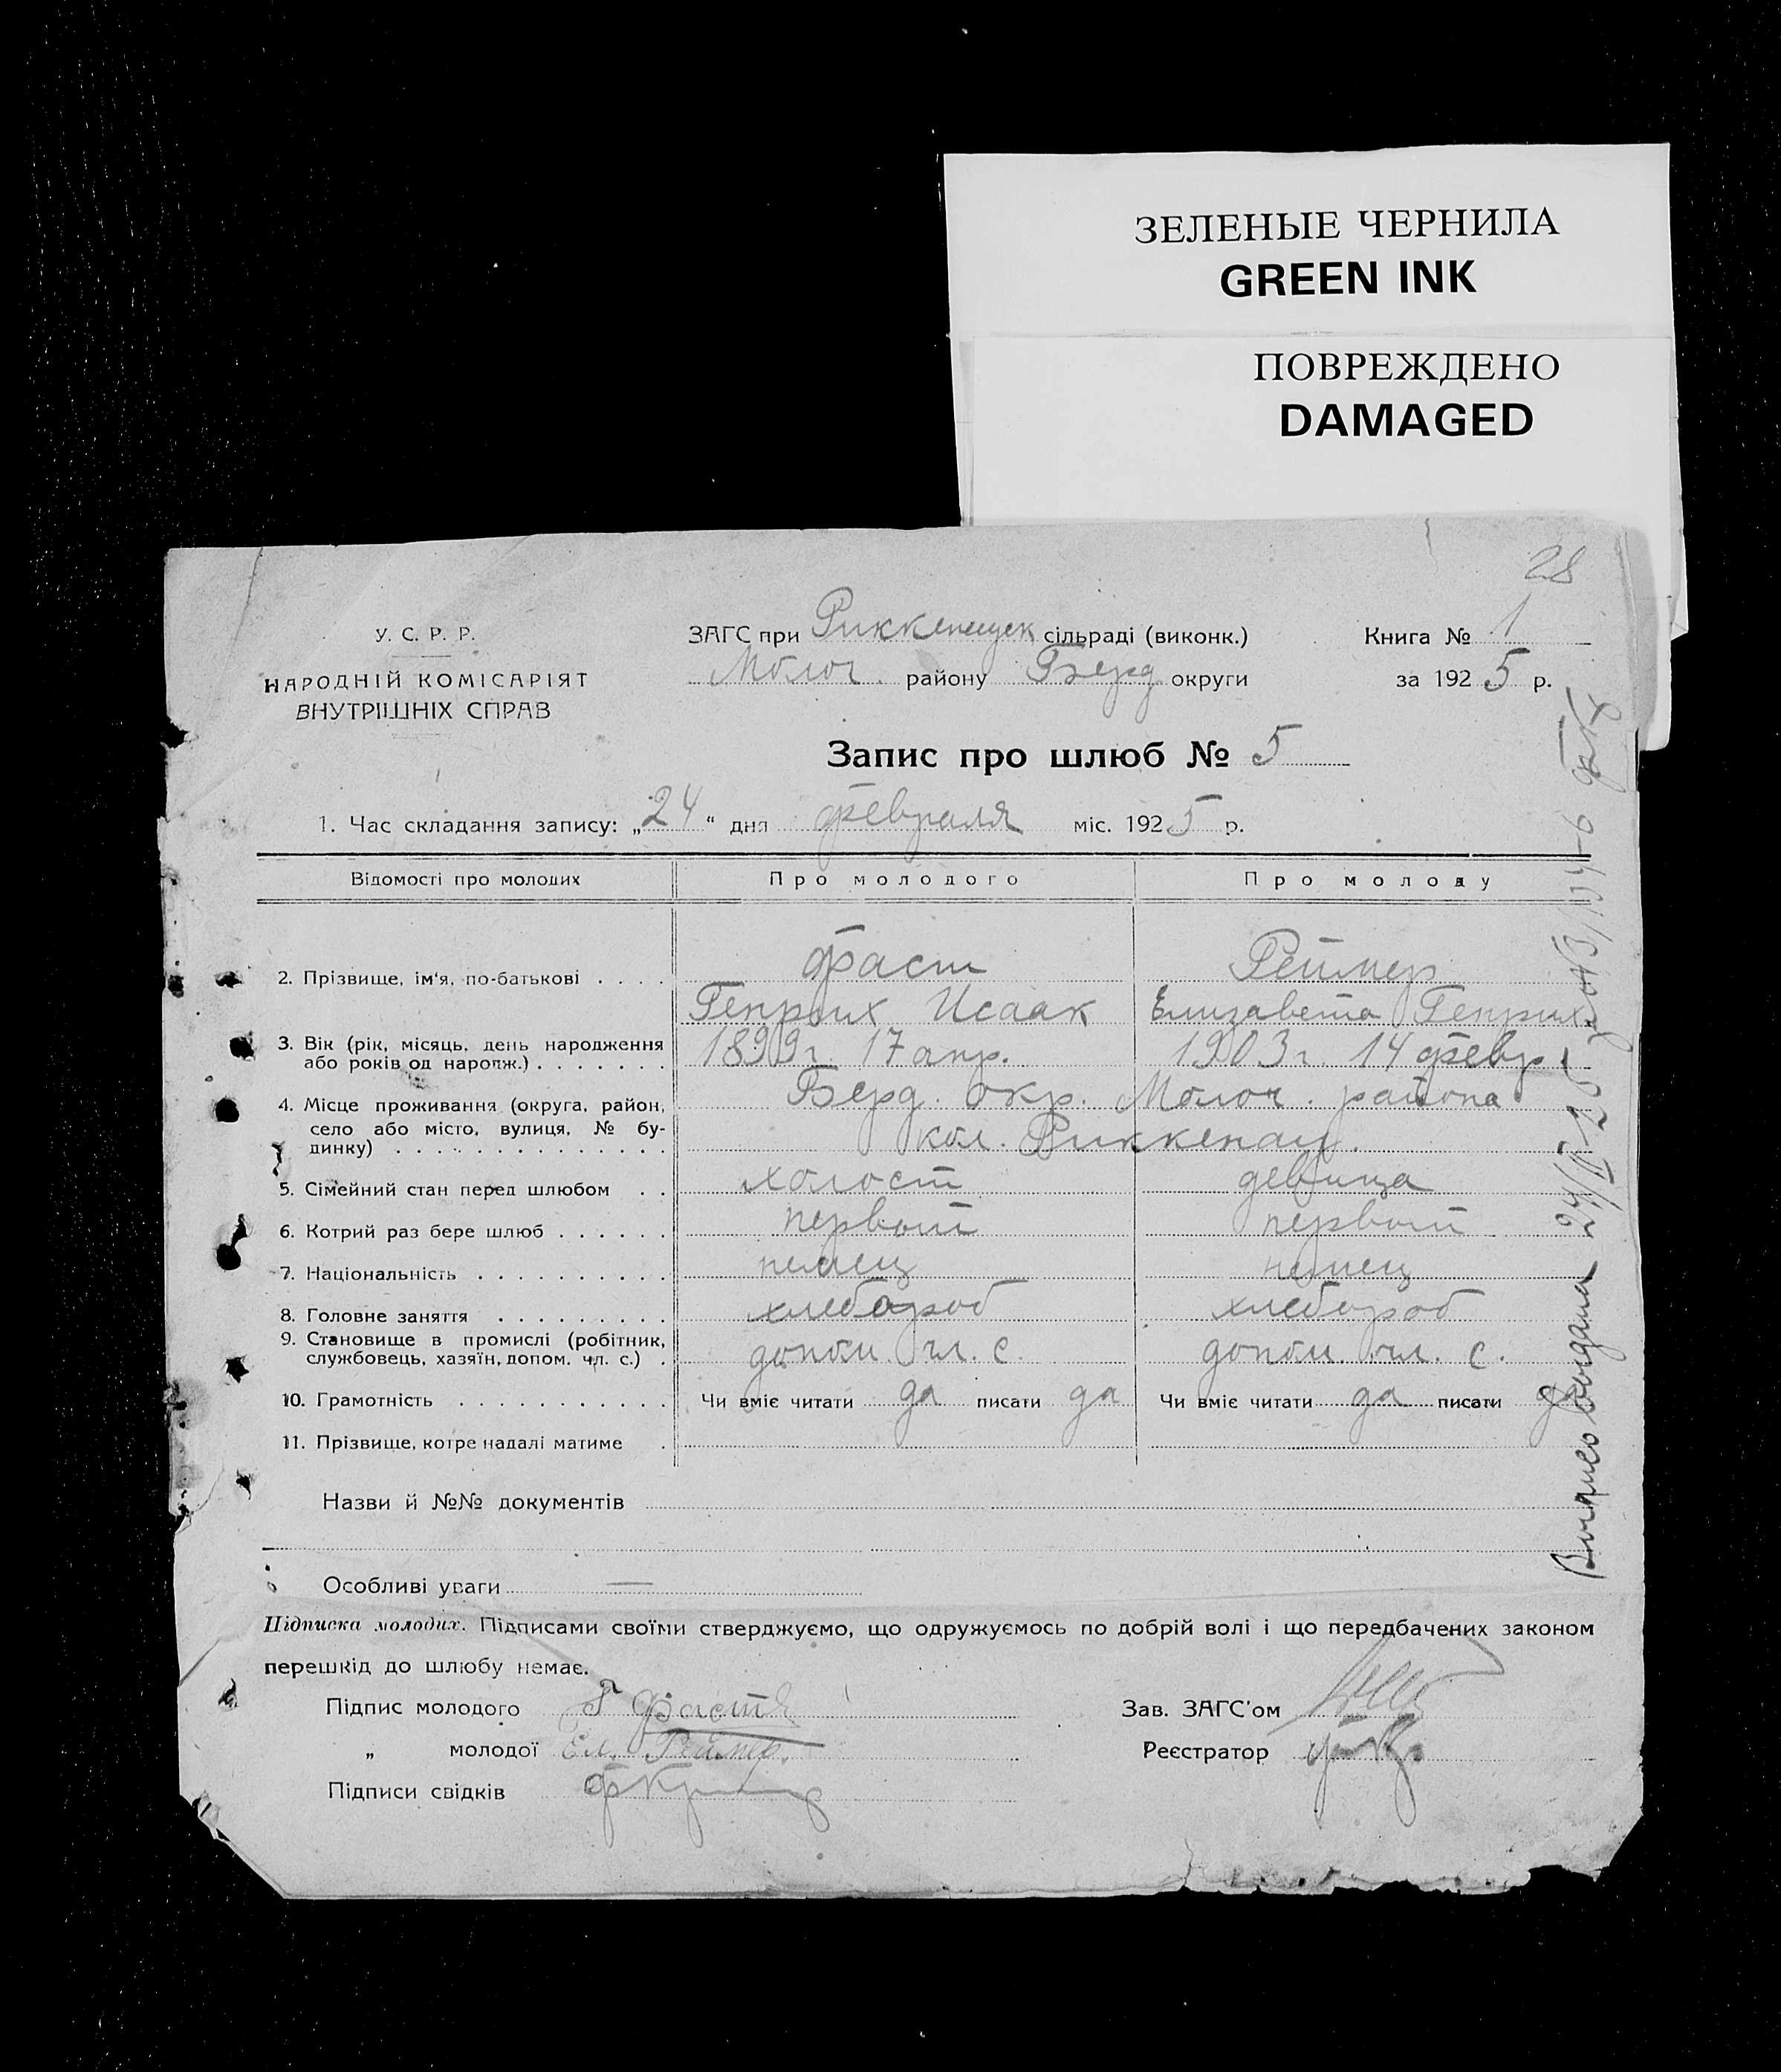 ЗЕЛЕНЫЕ ЧЕРНИЛА
GREEN INK
ПОВРЕЖДЕНО
DAMAGED
28
У. С. Р. Р.
НАРОДНІЙ КОМІСАРІЯТ
ВНУТРІШНІХ СПРАВ
ЗАГС при Риккенауск сільраді (виконк.)
Молоч. району Берд округи
Книга № 1
за 1925 р.
Запис про шлюб № 5
1. Час складання запису: „24“ дня февраля міс. 1925 р.
Відомості про молодих Про молодого Про молоду
Фаст Реймер
2. Прізвище, ім'я, по-батькові . . . .
Генрих Исаак Елизавета Генрих.
3. Вік (рік, місяць, день народження
або років од народж.) . . . . . . .
1899 г. 17 апр. 1903 г. 14 февр.
4. Місце проживання (округа, район,
село або місто, вулиця, № бу-
динку) . . . . . . . . . . . . . .
Берд. окр. Молоч. района
кол. Риккенау.
5. Сімейний стан перед шлюбом . . холост девица
6. Котрий раз бере шлюб . . . . . . первый первый
7. Національність . . . . . . . . . . немец немец
8. Головне заняття . . . . . . . . . хлебороб хлебороб
9. Становище в промислі (робітник,
службовець, хазяїн, допом. чл. с.) .
допом. чл. с. допом. чл. с.
10. Грамотність . . . . . . . . . . . Чи вміє читати да писати да Чи вміє читати да писати да
11. Прізвище, котре надалі матиме .
Назви й №№ документів
Особливі уваги —
Підписка молодих. Підписами своїми стверджуємо, що одружуємось по добрій волі і що передбачених законом
перешкід до шлюбу немає.
Підпис молодого Г Фастъ
„ молодої Ел. Реймер.
Підписи свідків
Зав. ЗАГС'ом
Реєстратор
Выпись выдана 24/II 25